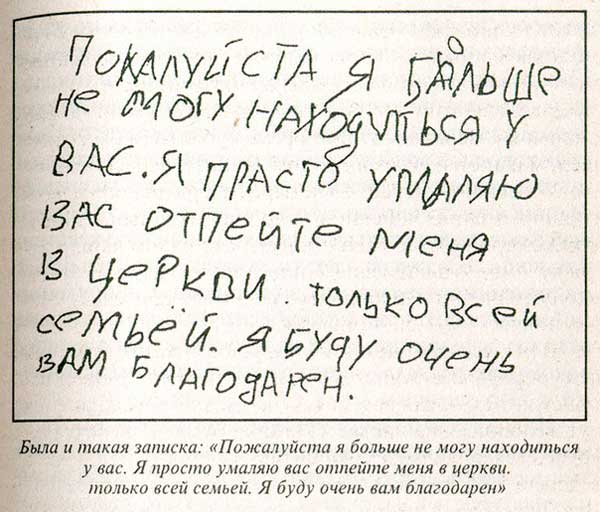 Пожалуйста я больше
не могу находиться у
вас. я прасто умаляю
вас отпейте меня
в церкви. только всей
семьей. я буду очень
вам благодарен.
Была и такая записка: «Пожалуйста я больше не могу находиться
у вас. Я просто умаляю вас отпейте меня в церкви.
только всей семьей. Я буду очень вам благодарен»